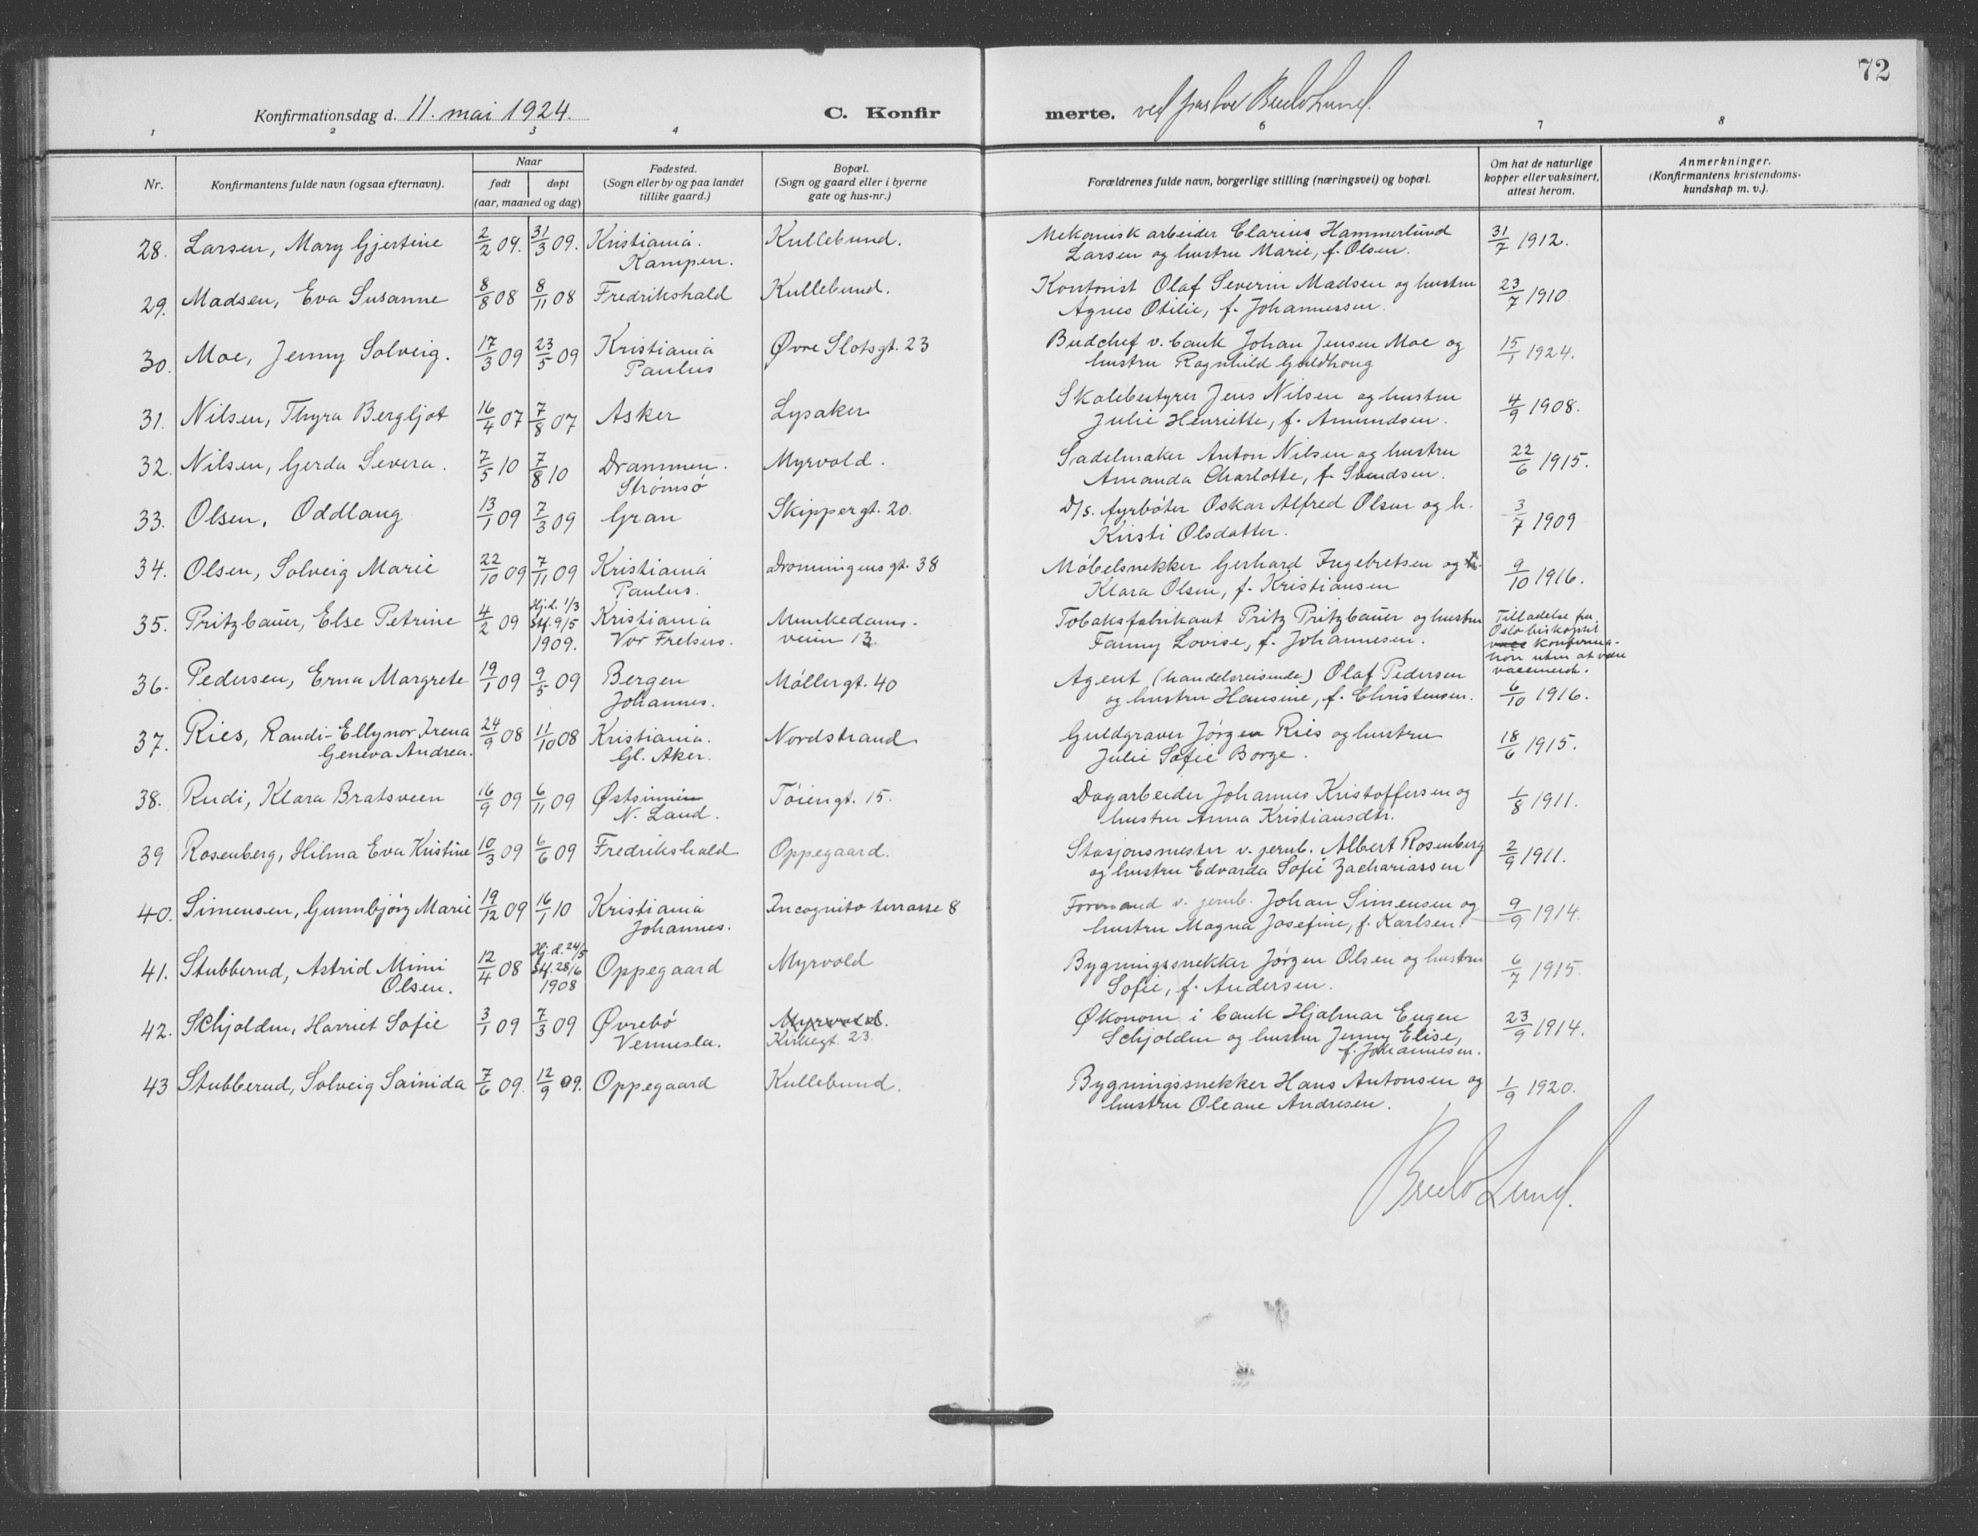 72
Konfirmationsdag d. 11. mai 1924. C. Konfirmerte. ved pastor Lund.
1 2 3 4 6 7 8
Nr. Konfirmantens fulde navn (ogsaa efternavn). Naar født døpt (aar, maaned og dag) Fødested. (Sogn eller by og paa landet tillike gaard.) Bopæl. (Sogn og gaard eller i byerne gate og hus-nr.) Forældrenes fulde navn, borgerlige stilling (næringsvei) og bopæl. Om hat de naturlige kopper eller vaksinert, attest herom. Anmerkninger. (Konfirmantens kristendoms-kundskap m. v.).
28. Larsen, Mary Gjertine 2/2 09. 31/3 09. Kristiania. Kampen. Kullebund. Mekanisk arbeider Clarius Hammerlund Larsen og hustru Marie, f. Olsen. 31/7 1912.
29. Madsen, Eva Susanne 8/8 08 8/11 08 Fredrikshald Kullebund. Kontorist Olaf Severin Madsen og hustru Agnes Otilie, f. Johannessen. 23/7 1910
30. Moe, Jenny Solveig. 17/3 09 23/5 09 Kristiania Paulus Øvre Slotsgt. 23 Budchef v. bank Johan Jensen Moe og hustru Ragnhild Guldhoug 15/1 1924.
31. Nilsen, Thyra Bergljot 16/4 07 7/8 07 Asker Lysaker Skolebestyrer Jens Nilsen og hustru Julie Henriette, f. Amundsen. 4/9 1908.
32. Nilsen, Gerda Severa. 7/5 10 7/8 10 Drammen. Strømsø Myrvold. Sadelmaker Anton Nilsen og hustru Amanda Charlotte, f. Svendsen. 22/6 1915.
33. Olsen, Oddlaug 13/1 09 7/3 09 Gran Skippergt. 20. D/s. fyrbøter Oskar Alfred Olsen og h. Kirsti Olsdatter. 3/7 1909
34. Olsen, Solveig Marie 22/10 09 7/11 09 Kristiania Paulus. Dronningens gt. 38 Møbelsnekker Gerhard Ingebretsen og Klara Olsen, f. Kristiansen 9/10 1916.
35. Pritzbauer, Else Petrine 4/2 09 Hj.d. 1/3 Stf. 9/5 1909. Kristiania Vor Frelsers. Munkedamsveien 13. Tobaksfabrikant Fritz Pritzbauer og hustru Fanny Lovise, f. Johannesen. Tilladelse fra Oslo biskop til konfirmation uten at være vaccinert.
36. Pedersen, Erna Margrete 19/1 09 9/5 09 Bergen Johannes. Møllergt. 40 Agent (handelsreisende) Olaf Pedersen og hustru Hansine, f. Christensen. 6/10 1916.
37. Ries, Randi-Ellynor Irena Geneva Andrea. 24/9 08 11/10 08 Kristiania. Gl. Aker. Nordstrand Guldgraver Jørgen Ries og hustru Julie Sofie Borge. 18/6 1915.
38. Rudi, Klara Bratsveen 16/9 09 6/11 09 Østsinnen N. Land. Tøiengt. 15. Dagarbeider Johannes Kristoffersen og hustru Anna Kristiansdtr. 1/8 1911.
39 Rosenberg, Hilma Eva Kristine 10/3 09 6/6 09 Fredrikshald Oppegaard. Stasjonsmester v. jernb. Albert Rosenberg og hustru Edvarda Sofie Zachariassen 2/9 1911.
40. Simensen, Gunnbjørg Marie 19/12 09 16/1 10 Kristiania Johannes. Incognito terrasse 8 Formand v. jernb. Johan Simensen og hustru Magna Josefine, f. Karlsen. 9/9 1914.
41. Stubberud, Astrid Mimi Olsen. 12/4 08 Hj.d. 24/5 Stf. 28/6 1908 Oppegaard Myrvold Bygningssnekker Jørgen Olsen og hustru Sofie, f. Andersen. 6/7 1915.
42. Schjolden, Harriet Sofie 3/1 09 7/3 09 Øvrebø Vennesla. Myrvold. Kirkegt. 23. Økonom i bank Hjalmar Eugen Schjolden og hustru Jenny Elise, f. Johannesen. 23/9 1914.
43 Stubberud, Solveig Sainida 7/6 09. 12/9 09. Oppegaard Kullebund. Bygningssnekker Hans Antonsen og hustru Oleane Andresen. 1/9 1920.
Lund.